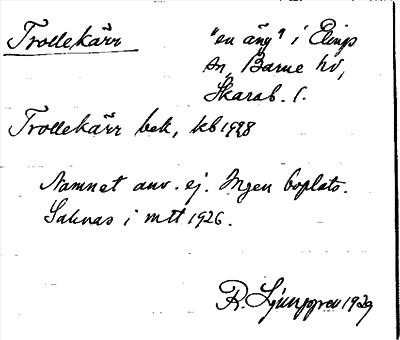 Trollekärr "en äng" i Elings
sn, Barne hd,
Skarab. l.
Trollekärr bek, kb 1928
Namnet anv. ej. Ingen boplats.
Saknas i mtt 1926.
R. Ljunggren 1929